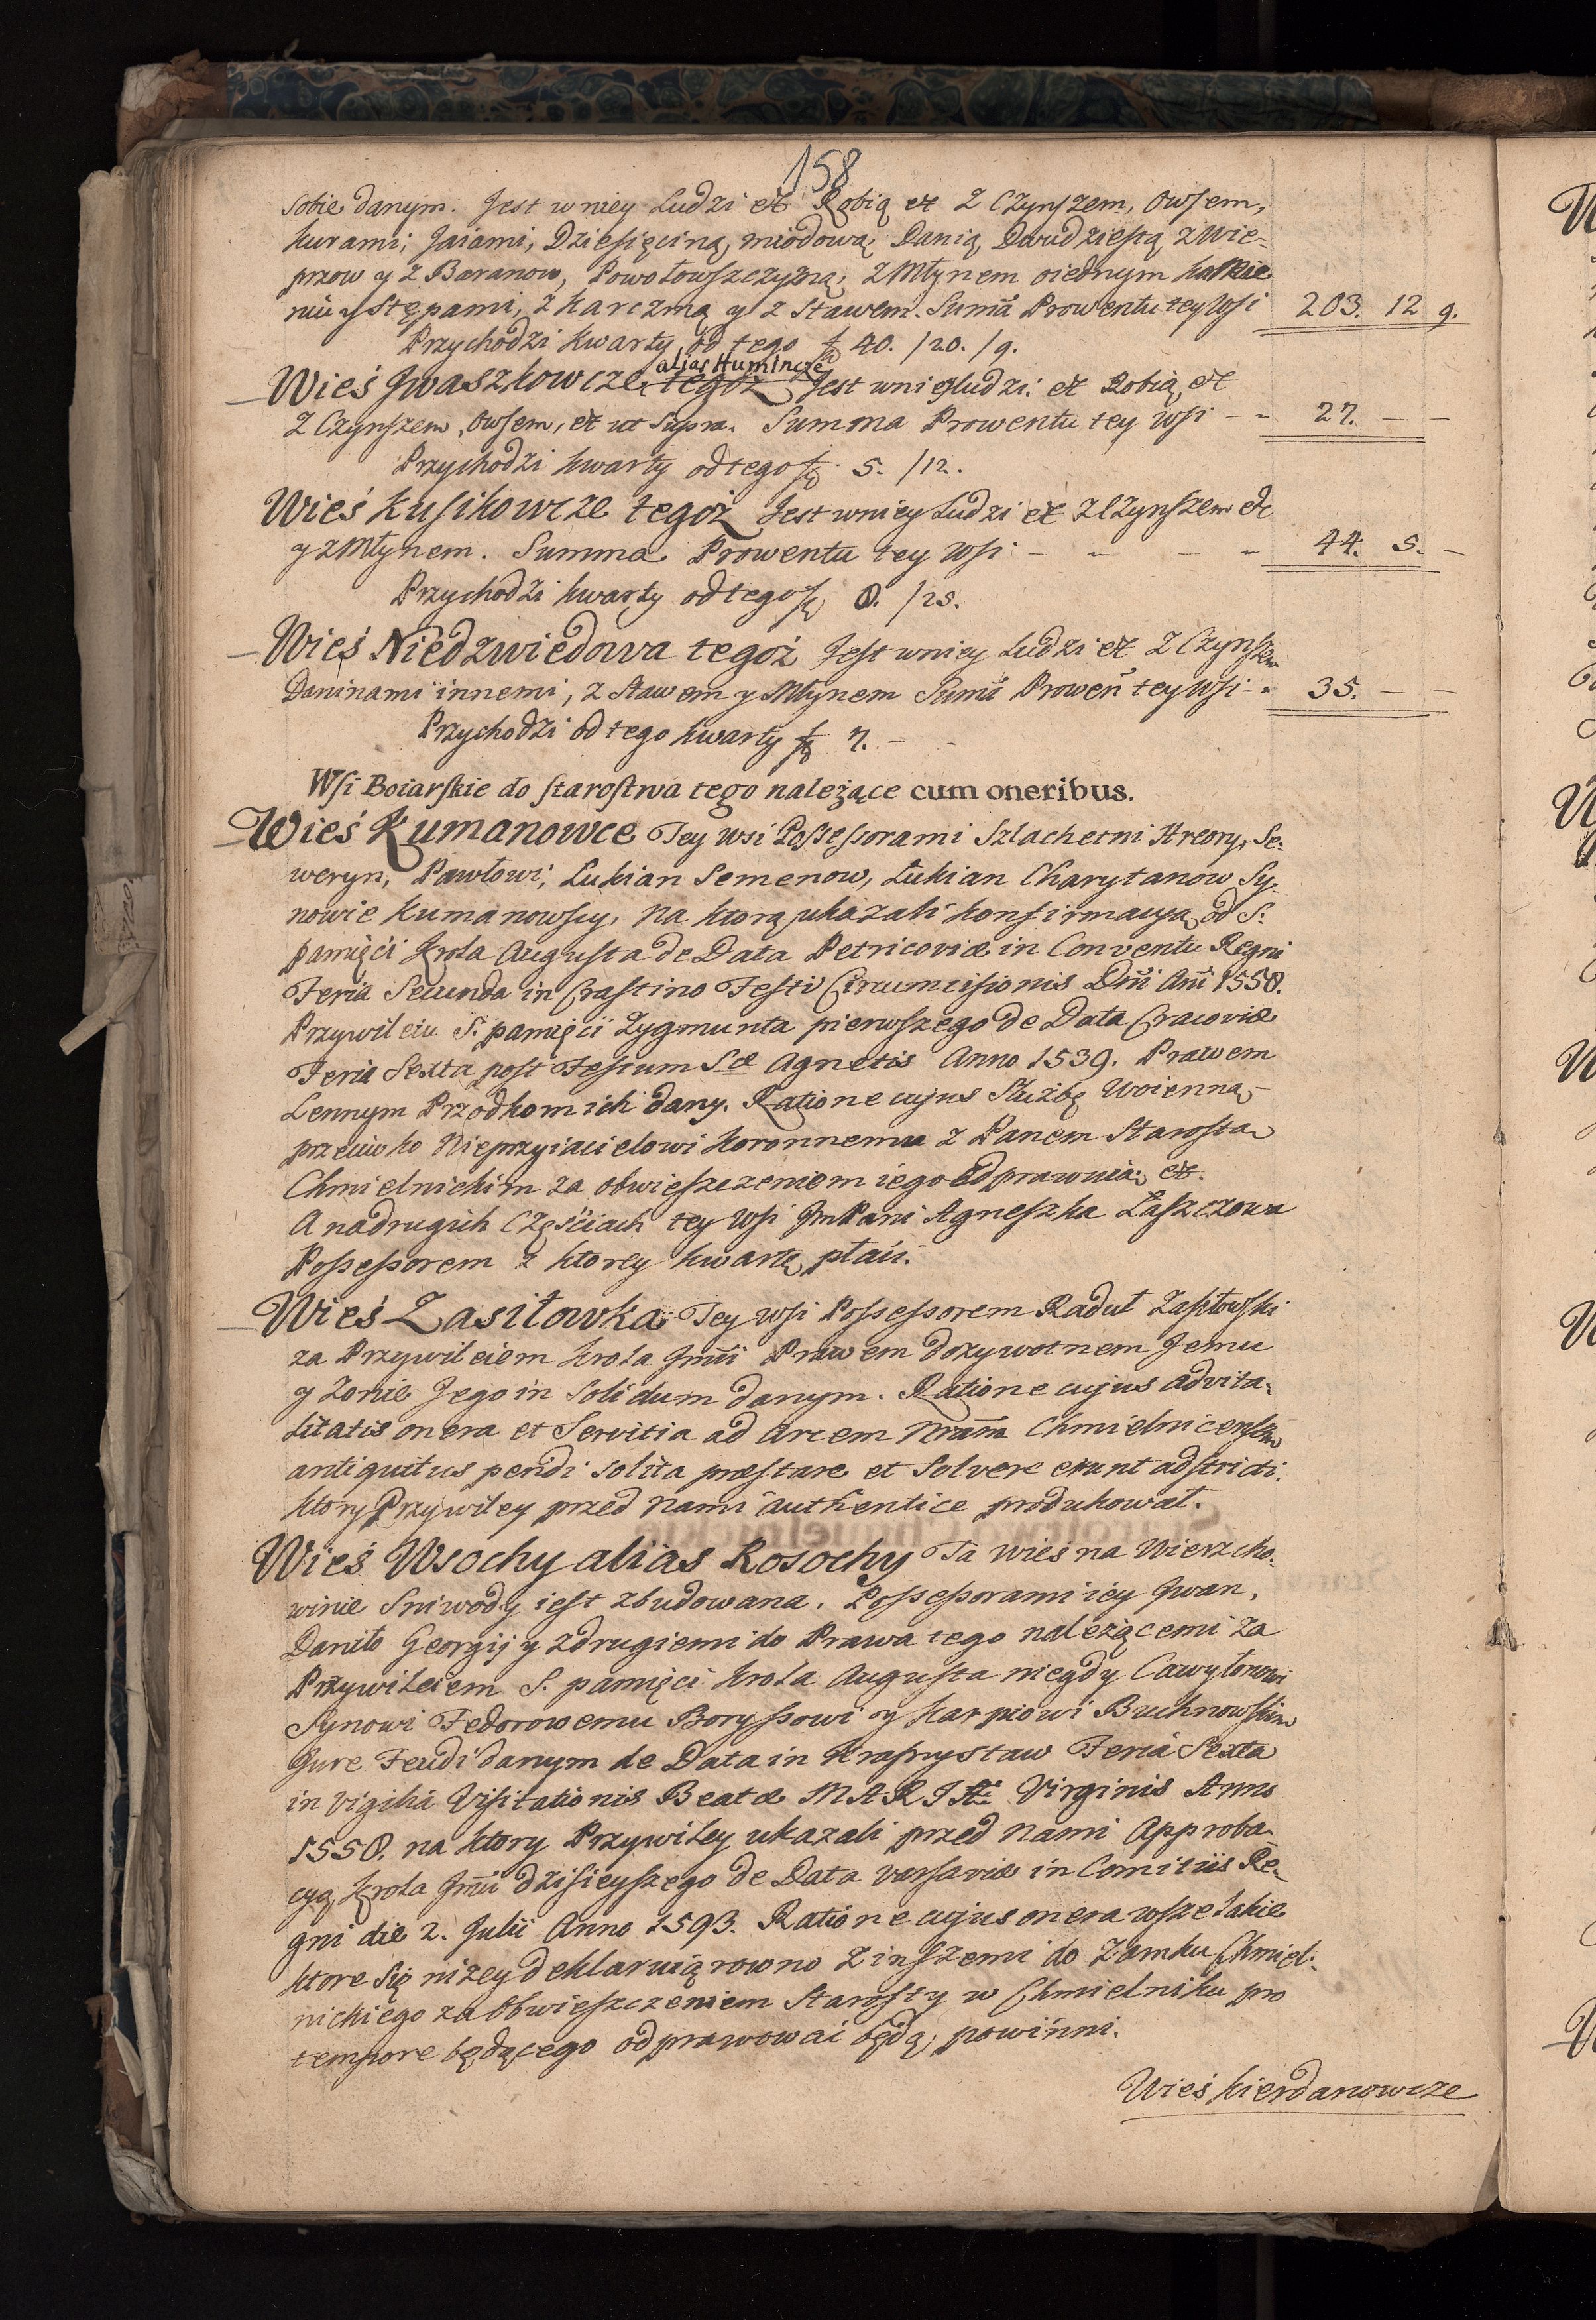 158
sobie danym. Jest w niey Ludzi etc Robią etc Z Czynszem, Owsem,
kurami, Jaiami, Dziesięciną, miodową Danią, Dwudziestą z Wie-
przow y z Baranow, Powołowszczyzną, z Młynem o iednym kamie
niu y Stępami, z karczmą y z Stawem. Sum̃a Prowentu tey Wsi 203. 12 9.
Przychodzi kwarty od tego fl 40. /20. /9.
alias Humincze
Wieś Jwaszkowcze tegoż Jest w niey ludzi etc Robią etc
Z Czynszem, Owsem, etc ut supra. Summa Prowentu tey Wsi - - 27. - -
Przychodzi kwarty od tego fl 5. /12.
Wieś Kusikowcze tegoż Jest w niey Ludzi etc Z Czynszem etc
y z Młynem. Summa Prowentu tey Wsi - - - - 44. 5. -
Przychodzi kwarty od tego fl 8. /25.
Wieś Niedzwiedowa tegoż Jest w niey Ludzi etc Z Czynszem
Daninami innemi, z Stawem y Młynem Sum̃a Prowen̄ tey Wsi - - 35. - -
Przychodzi od tego kwarty fl 7. - -
Wsi Boiarskie do starostwa tego należące cum oneribus.
Wieś Kumanowce Tey wsi Possessorami Szlachetni Hreory, Se-
weryn, Pawłowi, Lukian Semenow, Łukian Charytanow Sy-
nowie Kumanowscy, na ktorą ukazali konfirmacyą od S.
pamięci Krola Augusta de Data Petricoviæ in Conventu Regni
Feria Secunda in Crastino Festi Circumcisionis Dñi Añi 1558.
Przywileiu S. pamięci Zygmunta pierwszego de Data Cracoviæ
Feria Sexta post Festum Sctæ Agnetis Anno 1539. Prawem
Lennym Przodkom ich dany. Ratione cujus Służbę Woienną
przeciwko Nieprzyiacielowi koronnemu z Panem Starostą
Chmielnickim za obwieszczeniem iego odprawuią, etc.
A na drugich częściach tey Wsi Jm Pani Agneszka Łaszczowa
Possessorem z ktorey kwartę płaci.
Wieś Zasiłowka Tey Wsi Possessorem Raduł Zasiłowski
za Przywileiem Krola Jmci Prawem dożywotnem Jemu
y Żonie Jego in solidum danym. Ratione cujus advita-
litatis onera et Servitia ad Arcem Nr̃am Chmielnicensem
antiquitus pendi solita præstare et Solvere erunt adstricti.
ktory Przywiley przed nami authentice produkował.
Wieś Wsochy alias Rosochy Ta wieś na Wierzcho-
winie Sniwody iest zbudowana. Possessorami iey Jwan,
Daniło Georgij y z drugiemi do Prawa tego należącemi za
Przywileiem S. pamięci Krola Augusta niegdy Cawyłowi
Synowi Fedorowemu Boryssowi y Karpiowi Buchnowskim
Jure Feudi danym de Data in Krasnystaw Feria Sexta
in vigilia Visitationis Beatæ MARIÆ Virginis Anno
1558. na ktory Przywiley ukazali przed Nami Approba-
cyą Krola Jmci dzisieyszego de Data Varsaviæ in Comitiis Re-
gni die 2. Julii Anno 1593. Ratione cujus onera wszelakie
ktore się niżey deklaruią rowno z inszemi do Zamku Chmiel-
nickiego za Obwieszczeniem Starosty w Chmielniku pro
tempore będącego odprawować będą powinni.
Wieś Kierdanowcze